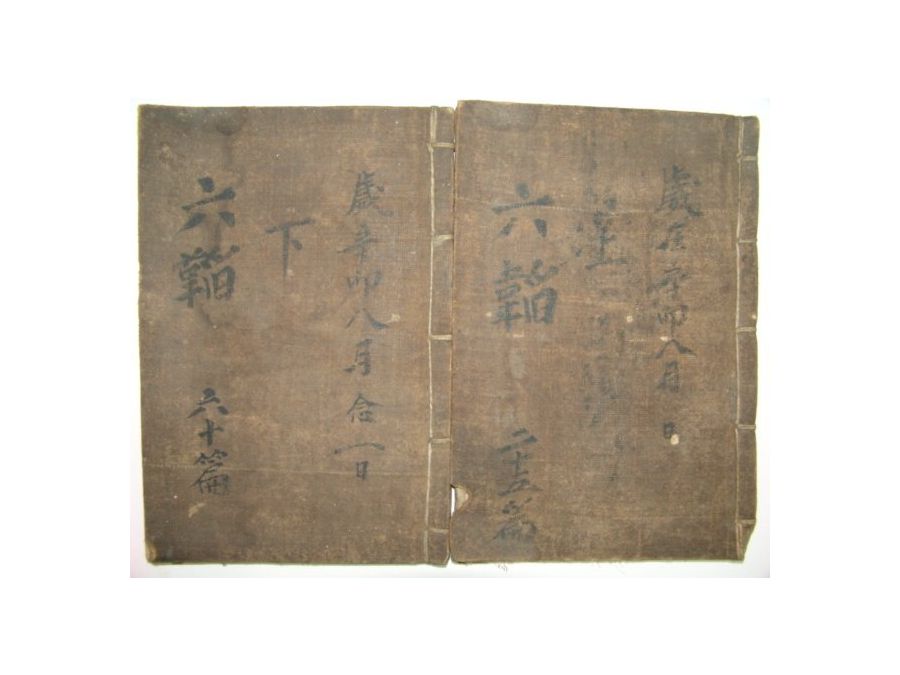 歲辛卯八月日
六韜 二十五篇
歲辛卯八月合一日
下
六韜 六十篇